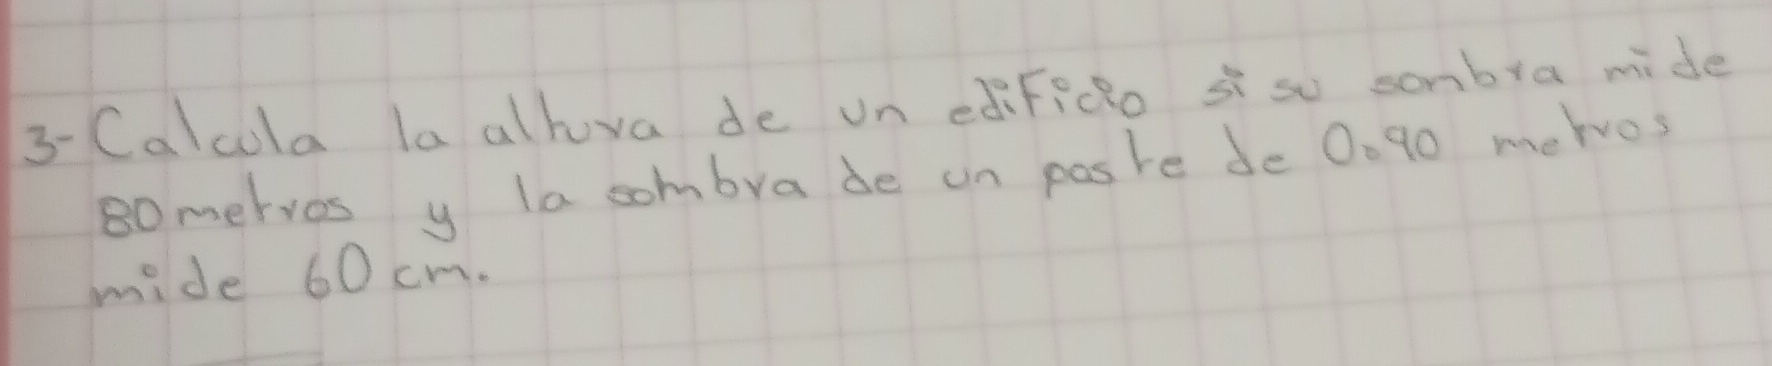 3- Calcula la altura de un edificio si su sombra mide
80 metros y la sombra de un poste de 0.90 metros
mide 60 cm.